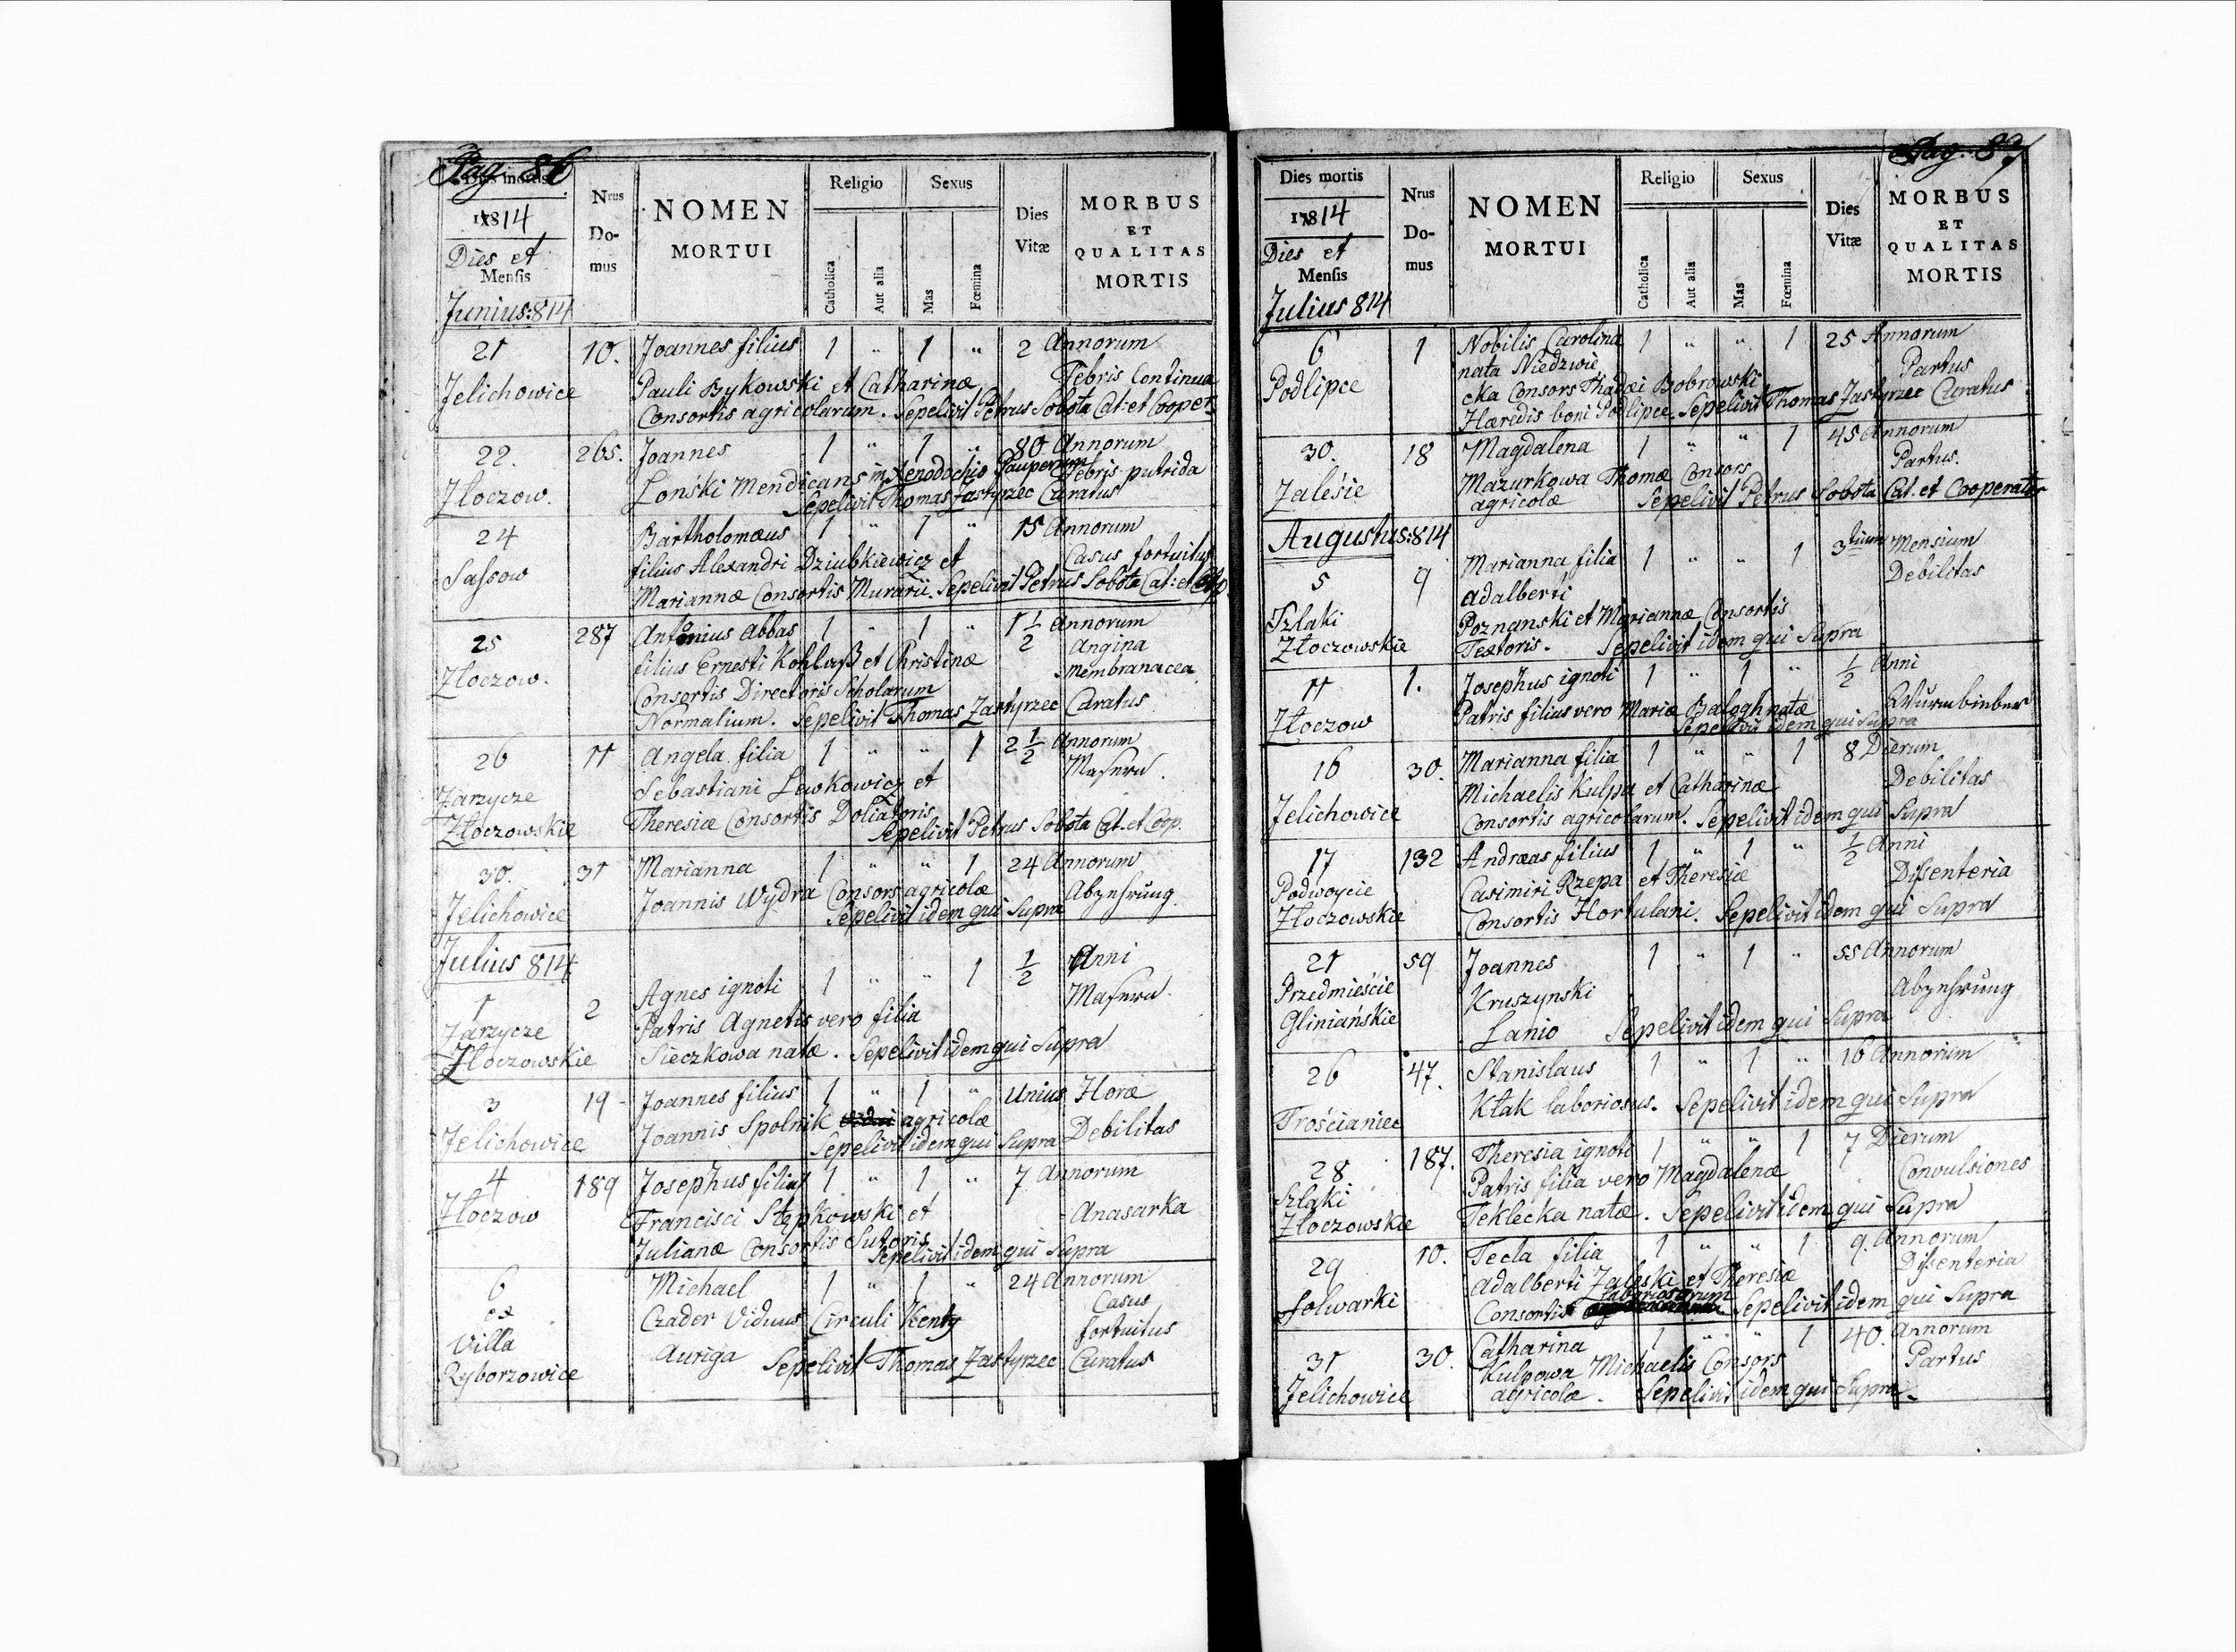 Pag. 86
Dies mortis
Nrus Domus
NOMEN MORTUI
Religio
Sexus
Catholica
Aut alia
Mas
Fœmina
Dies Vitæ
MORBUS ET QUALITAS MORTIS
1814
Dies et
Mensis
Junius:814
21 10. Joannes filius 1 " 1 " 2 Annorum
Jelichowice Pauli Bykowski et Catharinæ Febris Continua
Consortis agricolarum. Sepelivit Petrus Sobota Cat: et Cooper
22. 265. Joannes 1 " 1 " 80 Annorum
Złoczow. Lonski Mendicans in Xenodochio Pauperum Febris putrida
Sepelivit Thomas Zastyrzec Curatus
24 Bartholomæus 1 " 1 " 15 Annorum
Sassow filius Alexandri Dziubkiewicz et Casus fortuitus
Mariannæ Consortis Murarii. Sepelivit Petrus Sobota Cat: et
25 287 Antonius Abbas 1 " 1 " 1 1/2 Annorum
Złoczow. filius Ernesti et Christinæ Angina
Consortis Directoris Scholarum Membranacea
Normalium. Sepelivit Thomas Zastyrzec Curatus
26 11 Angela filia 1 " " 1 2 1/2 Annorum
Zarzycze Sebastiani Lewkowicz et Masern.
Złoczowskie Theresiæ Consortis Doliatoris
Sepelivit Petrus Sobota Cat. et Coop.
30. 31 Marianna 1 " " 1 24 Annorum
Jelichowice Joannis Wydra Consors agricolæ Abzehrung
Sepelivit idem qui Supra
Julius 814
1 2 Agnes ignoti 1 " " 1 1/2 Anni
Zarzycze Patris Agnetis vero filia Masern.
Złoczowskie Sieczkowa natæ. Sepelivit idem qui Supra
3 19 Joannes filius 1 " 1 " Unius Horæ
Jelichowice Joannis Spolnik agricolæ Debilitas
Sepelivit idem qui Supra
4 189 Josephus filius 1 " 1 " 7 Annorum
Złoczow Francisci Stępkowski et Anasarka
Julianæ Consortis Sutoris
Sepelivit idem qui Supra
6 Michael 1 " 1 " 24 Annorum
ex Czader Viduus Circuli Kenty Casus
Villa fortuitus
Ryborzowice Auriga Sepelivit Thomas Zastyrzec Curatus
Pag. 87
Dies mortis
Nrus Domus
NOMEN MORTUI
Religio
Sexus
Catholica
Aut alia
Mas
Fœmina
Dies Vitæ
MORBUS ET QUALITAS MORTIS
1814
Dies et
Mensis
Julius 814
6 1 Nobilis Carolina 1 " " 1 25 Annorum
Podlipce nata Niedzwie Partus
cka Consors Thadæi Bobrowski
Hæredis boni Podlipce. Sepelivit Thomas Zastyrzec Curatus
30. 18 Magdalena 1 " " 1 45 Annorum
Zalesie Mazurkowa Thomæ Consors Partus.
agricolæ Sepelivit Petrus Sobota Cat. et Cooperator
Augustus:814
5 9 Marianna filia 1 " " 1 3tium Mensium
Szlaki Adalberti Debilitas
Poznanski et Mariannæ Consortis
Złoczowskie Textoris. Sepelivit idem qui Supra
11 1. Josephus ignoti 1 " 1 " 1/2 Anni
Złoczow Patris filius vero Mariæ Balogh natæ
Sepelivit idem qui Supra
16 30. Marianna filia 1 " " 1 8 Dierum
Michaelis Kulpa et Catharinæ Debilitas
Jelichowice Consortis agricolarum. Sepelivit idem qui Supra
17 132 Andræas filius 1 " 1 " 1/2 Anni
Podwoycie Casimiri Rzepa et Theresiæ Dissenteria
Złoczowskie Consortis Hortulani. Sepelivit idem qui Supra
21 59 Joannes 1 " 1 " 55 Annorum
Przedmieście Kruszynski Abzehrung
Gliniańskie Lanio Sepelivit idem qui Supra
26 47. Stanislaus 1 " 1 " 16 Annorum
Trościaniec Kłak laboriosus. Sepelivit idem qui Supra
28 187. Theresia ignoti 1 " " 1 7 Dierum
Szlaki Patris filia vero Magdalenæ Convulsiones
Złoczowskie Teklecka natæ. Sepelivit idem qui Supra
29 10. Tecla filia 1 " " 1 9. Annorum
Folwarki Adalberti Zaleski et Theresiæ Dissenteria
Consortis laboriosorum Sepelivit idem qui Supra
31 30. Catharina 1 " " 1 40. Annorum
Kulpowa Michaelis Consors Partus
Jelichowice agricolæ. Sepelivit idem qui Supra.